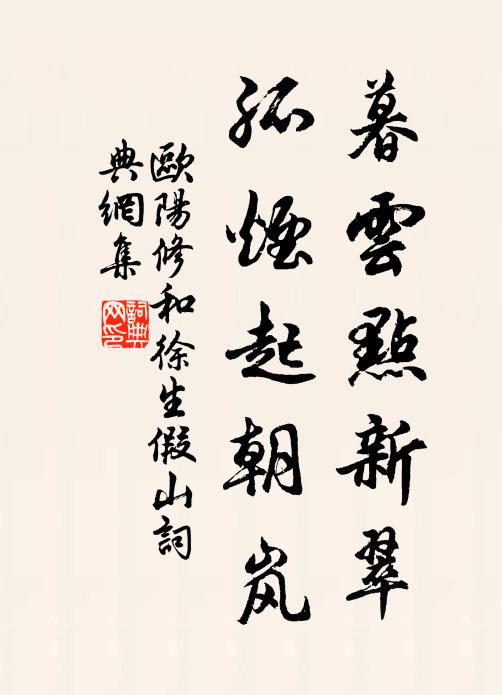 暮雲點新翠
孤煙起朝岚
歐陽修和徐生假山詞
典網集
詞典网印